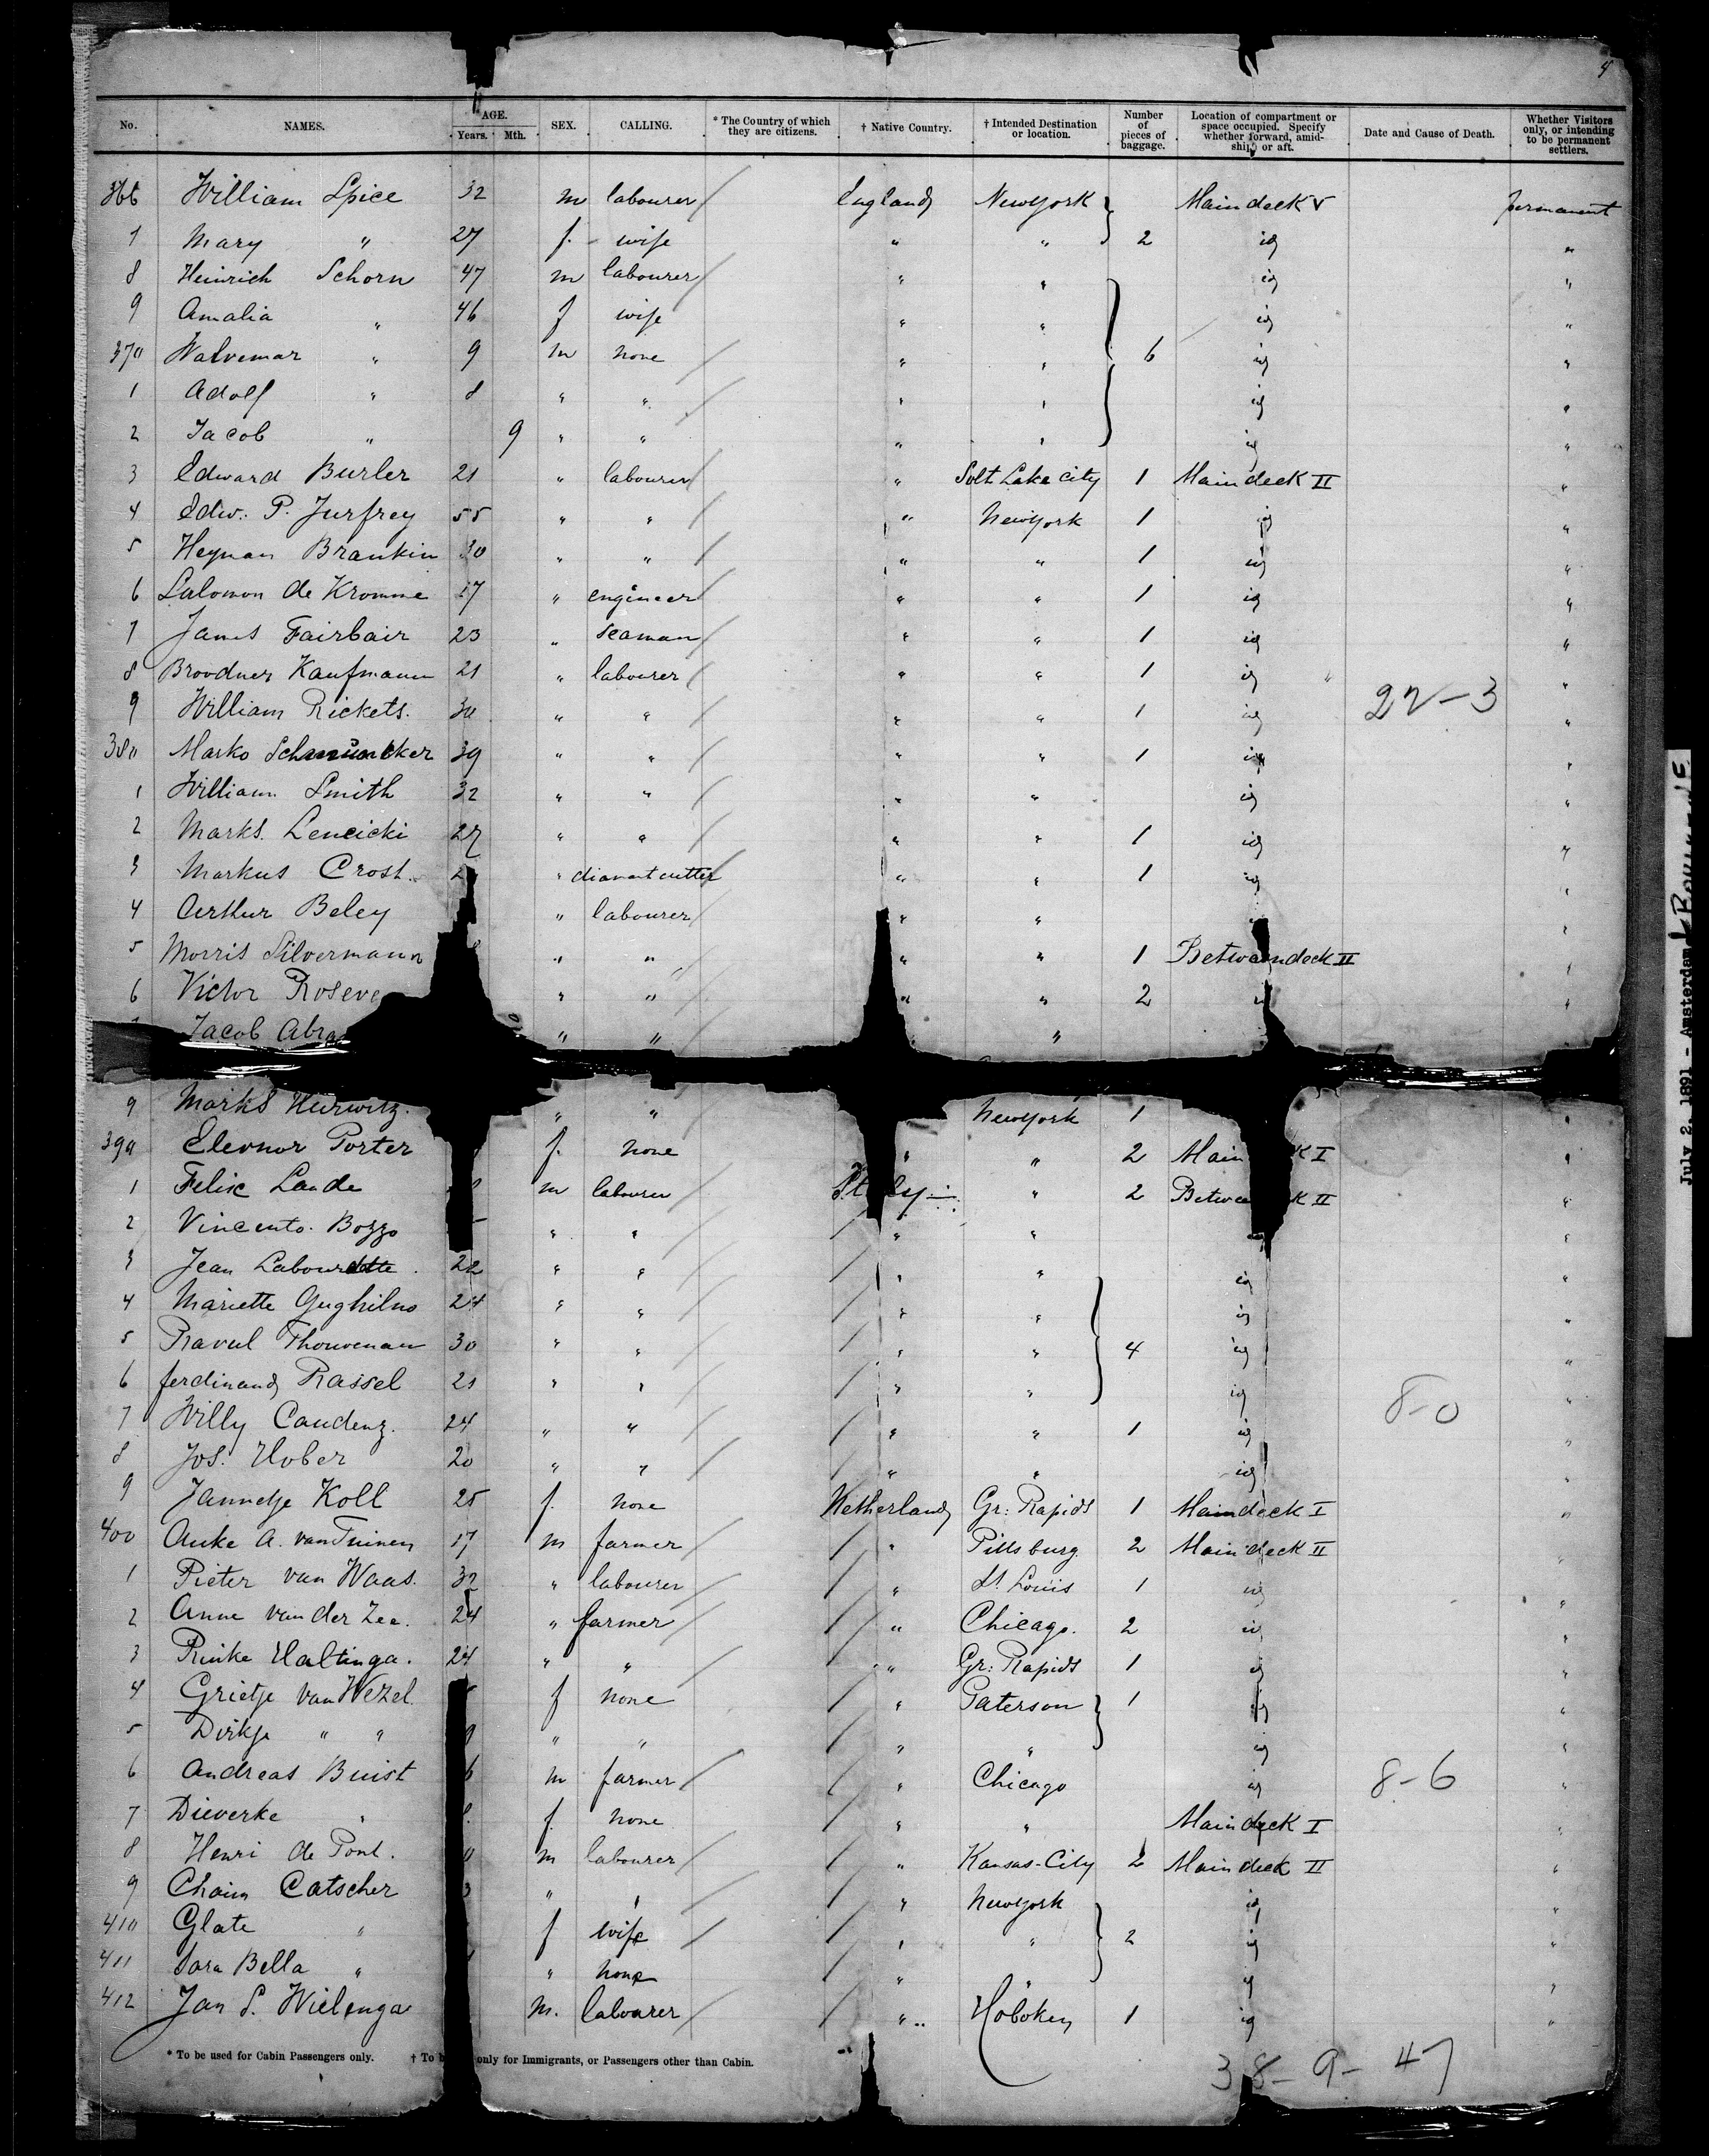 4
No. NAMES. AGE. Years. Mth. SEX. CALLING. * The Country of which they are citizens. † Native Country. † Intended Destination or location. Number of pieces of baggage. Location of compartment or space occupied. Specify whether forward, amidships or aft. Date and Cause of Death. Whether Visitors only, or intending to be permanent settlers.
366 William Spice 32 m labourer England New York Maindeck V permanent
7 Mary " 27 f. wife " " 2 id "
8 Heinrich Schorn 47 m labourer " " id "
9 Amalia " 46 f wife " " id "
370 Walvemar " 9 m none " " 6 id "
1 Adolf " 8 " " " " id "
2 Jacob " 9 " " " " id "
3 Edward Burler 21 " labourer " Solt Lake City 1 Maindeck II "
4 Edw. P. Jurfrey 55 " " " New York 1 id "
5 Heyman Brankin 30 " " " " 1 id "
6 Salomon de Kromme 17 " engineer " " 1 id "
7 James Fairbair 23 " seaman " " 1 id "
8 Broodner Kaufmann 21 " labourer " " 1 id "
9 William Rickets. 30 " " " " 1 id 22-3 "
380 Marko 39 " " " " 1 id "
1 William Smith 32 " " " " id "
2 Marks. Lencicki 27 " " " " 1 id "
3 Markus Crost. " diamant cutter " " 1 id "
4 Arthur Beley " labourer " " "
5 Morris Silvermann " " " " 1 Betweendeck II "
6 Victor Roseve " " " " 2 "
Jacob Abra " " "
9 Marks Hurwitz. " " New York 1 "
390 Eleonor Porter f. none " " 2 Main k I "
1 Felix Lande m labourer Italy " 2 Betwee k II "
2 Vincento. Bozzo " " " " "
3 Jean Labourdette. 22 " " " " id "
4 Mariette Gughilno 24 " " " " id "
5 Raoul Thouvenau 30 " " " " 4 id "
6 ferdinand Rassel 21 " " " " id 8-0 "
7 Willy Caudenz. 24 " " " " 1 id "
8 Jos. Huber 20 " " " " id "
9 Janndje Koll 25 f. none Netherland Gr: Rapids 1 Maindeck I "
400 Auke A. van Tuinen 17 m farmer " Pittsburg 2 Maindeck II "
1 Pieter van Waas. 32 " labourer " St. Louis 1 id "
2 Anne van der Zee. 24 " farmer " Chicago. 2 id "
3 Rinke Haltinga. 24 " " " Gr: Rapids 1 id "
4 Grietje van Wezel. f none " Paterson 1 id "
5 Dirkje " " " " " " id "
6 Andreas Buist 6 m farmer " Chicago id 8-6 "
7 Dieverke " f. none " " Maindeck I "
8 Henri de Pont. m labourer " Kansas-City 2 Maindeck II "
9 Chaim Catscher 3 " " " New York id "
410 Glate " f wife " " 2 id "
411 Sara Bella " " none " " id "
412 Jan S. Wielenga m. labourer " Hoboken 1 id "
* To be used for Cabin Passengers only. † To b only for Immigrants, or Passengers other than Cabin.
38-9-47
July 2, 1891 - Amsterdam